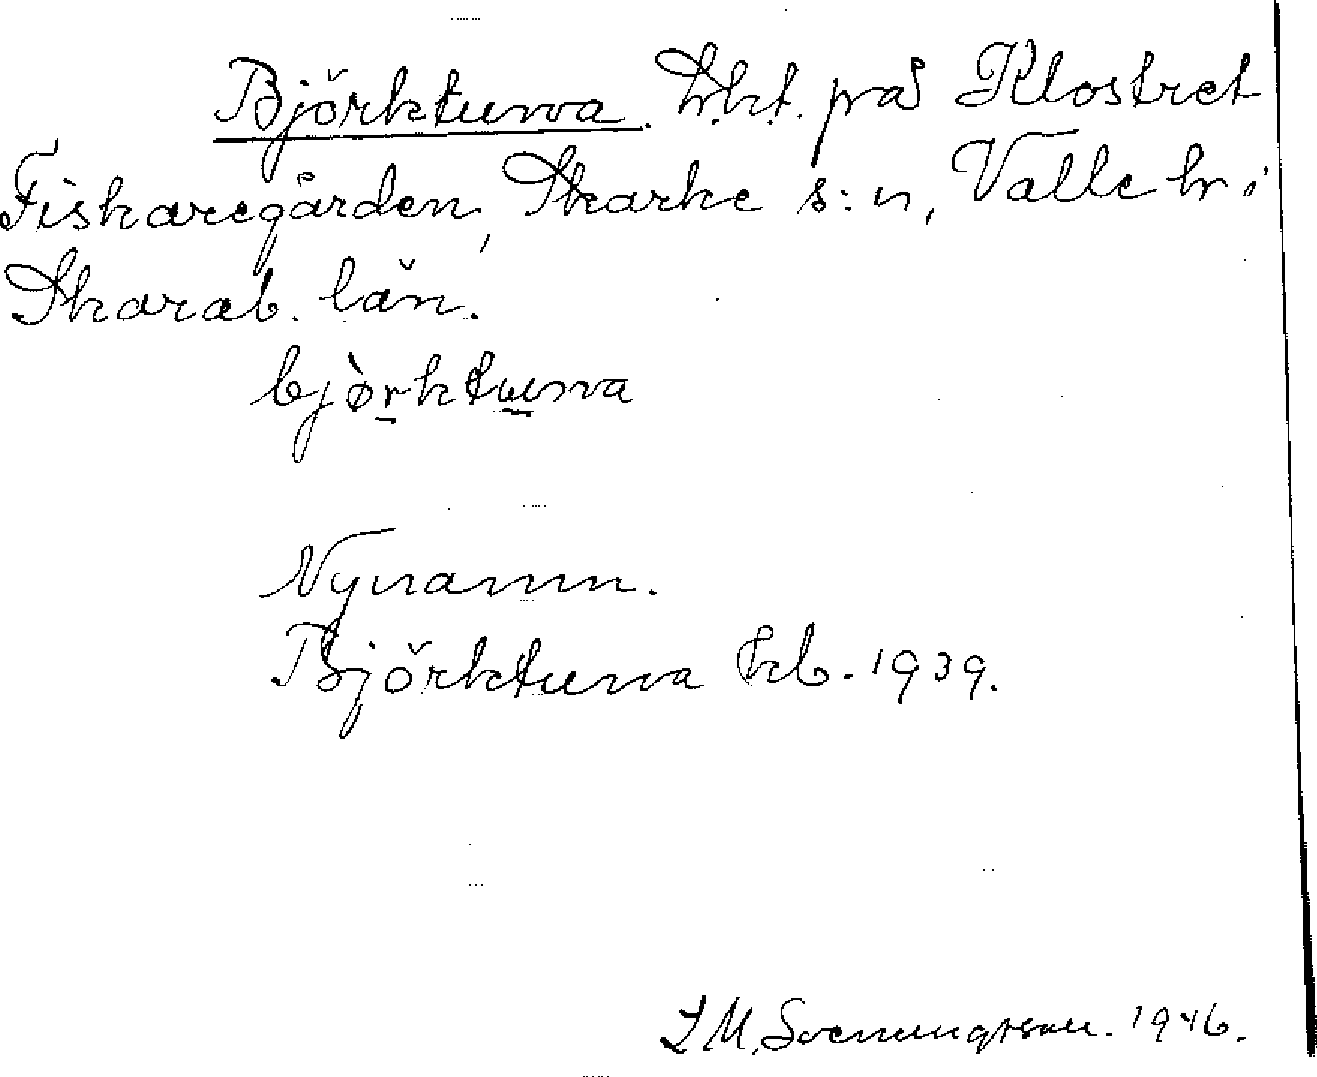 Björktuna. h.h.t. på Klostret
Fiskaregården, Skarke s:n, Valle hr i
Skarab. län.
bjòrktuna
Nynamn.
Björktuna kb. 1939.
I M. Svenungsson. 1946.